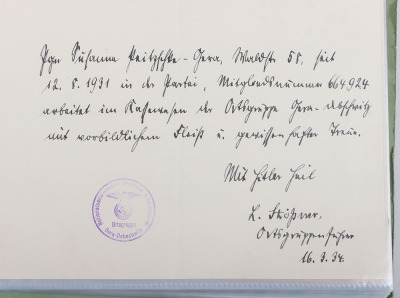 Pgn Susanna Peitzschke - Gera, Waldstr 58, seit
12. 8. 1931 in der Partei, Mitgliedsnummer 664924
arbeitet im Kassenwesen der Ortsgruppe Gera-Debschwitz
mit vorbildlichem Fleiß u. gewissenhafter Treue.
Mit Hitler Heil
L. Stößner,
Ortsgruppenführer
16. 3. 34.
Ortsgruppe
Gera-Debschwitz